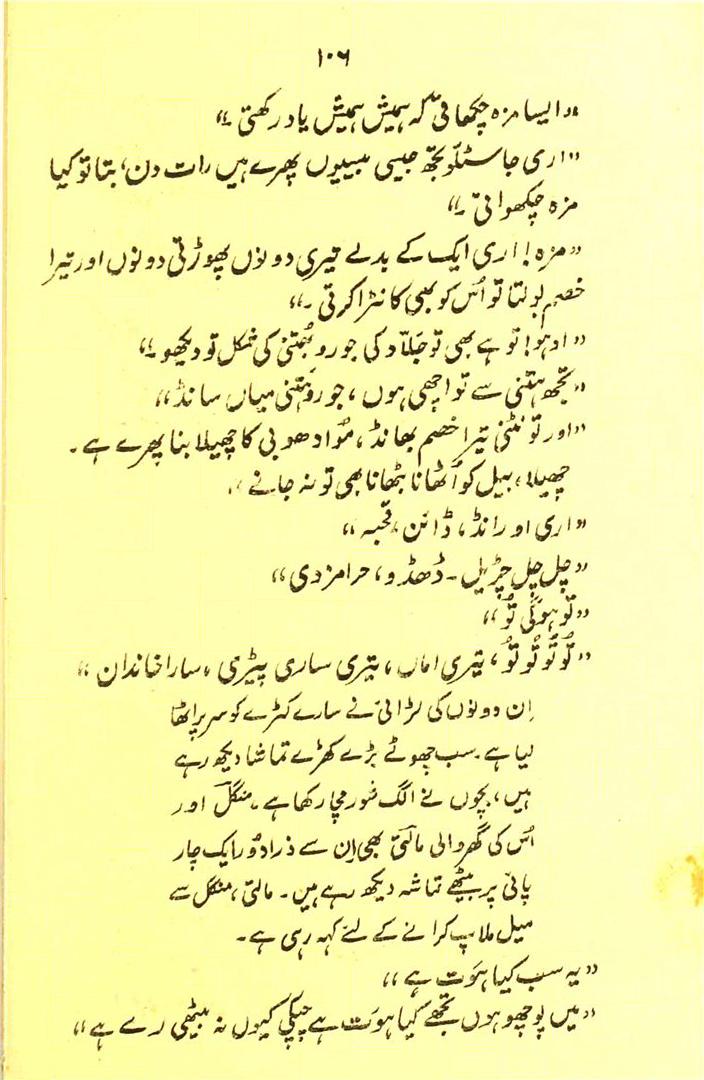 ۱۰۶
"ایسا مزہ چکھاتی کہ ہمیش ہمیش یاد رکھتی۔"
"اری جا سٹلّو تجھ جیسی بیسیوں پھرے ہیں رات دن، بتا تو کیا
مزہ چکھواتی۔"
"مزہ! اری ایک کے بدلے تیری دونوں پھوڑتی دونوں اور تیرا
خصم بولتا تو اُس کو بھی کانڑا کرتی۔"
"اوہو! تو ہے بھی تو جلّاد کی جورو بُھتنی کی شکل تو دیکھو۔"
"تجھ ہتنی سے تو اچھی ہوں، جورو ہتنی میاں سانڈ"
"اور تو نٹنی تیرا خصم بھانڈ، مُوا دھوبی کا چھیلا بنا پھرے ہے۔
چھیلا، بیل کو اُٹھانا بٹھانا بھی تو نہ جانے"
"اری او رانڈ، ڈائن، قحبہ"
"چل چل چڑیل۔ ڈھڈو، حرامزدی"
"تو ہوگی تُو"
"تُو تُو تُو تُو، تیری اماں، تیری ساری پیڑی، سارا خاندان"
اِن دونوں کی لڑائی نے سارے کٹرے کو سر پر اٹھا
لیا ہے۔ سب چھوٹے بڑے کھڑے تماشا دیکھ رہے
ہیں، بچوں نے الگ شور مچا رکھا ہے۔ منگل اور
اُس کی گھر والی مالتی بھی اِن سے ذرا دُور ایک چار
پائی پر بیٹھے تماشہ دیکھ رہے ہیں۔ مالتی، منگل سے
میل ملاپ کرانے کے لئے کہہ رہی ہے۔
"یہ سب کیا ہوَت ہے"
"میں پوچھو ہوں تجھے کیا ہوَت ہے چپکی کیوں نہ بیٹھی رے ہے"